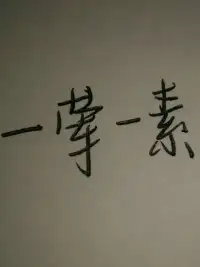 一荤一素